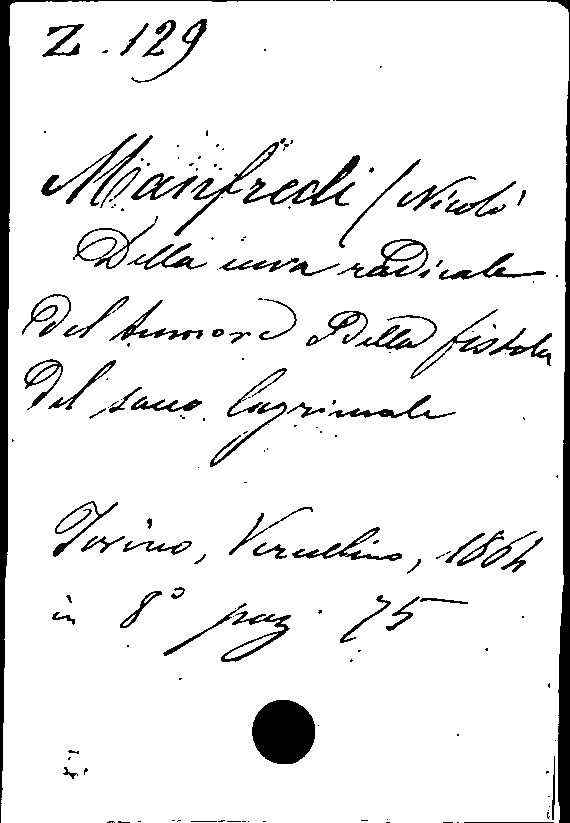 Z. 129
Manfredi (Nicolò
Della cura radicale
del tumore e della fistola
del sacco lagrimale
Torino, Vercellino, 1864
in 8° pag. 75